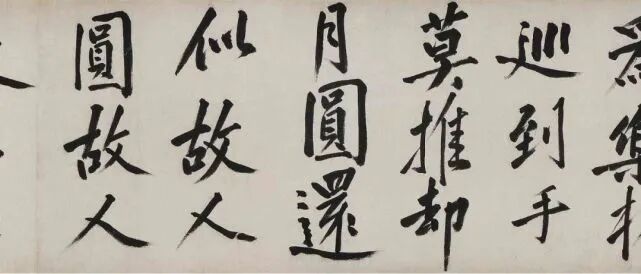 巡到手
莫推却
月圓還
似故人
圓故人